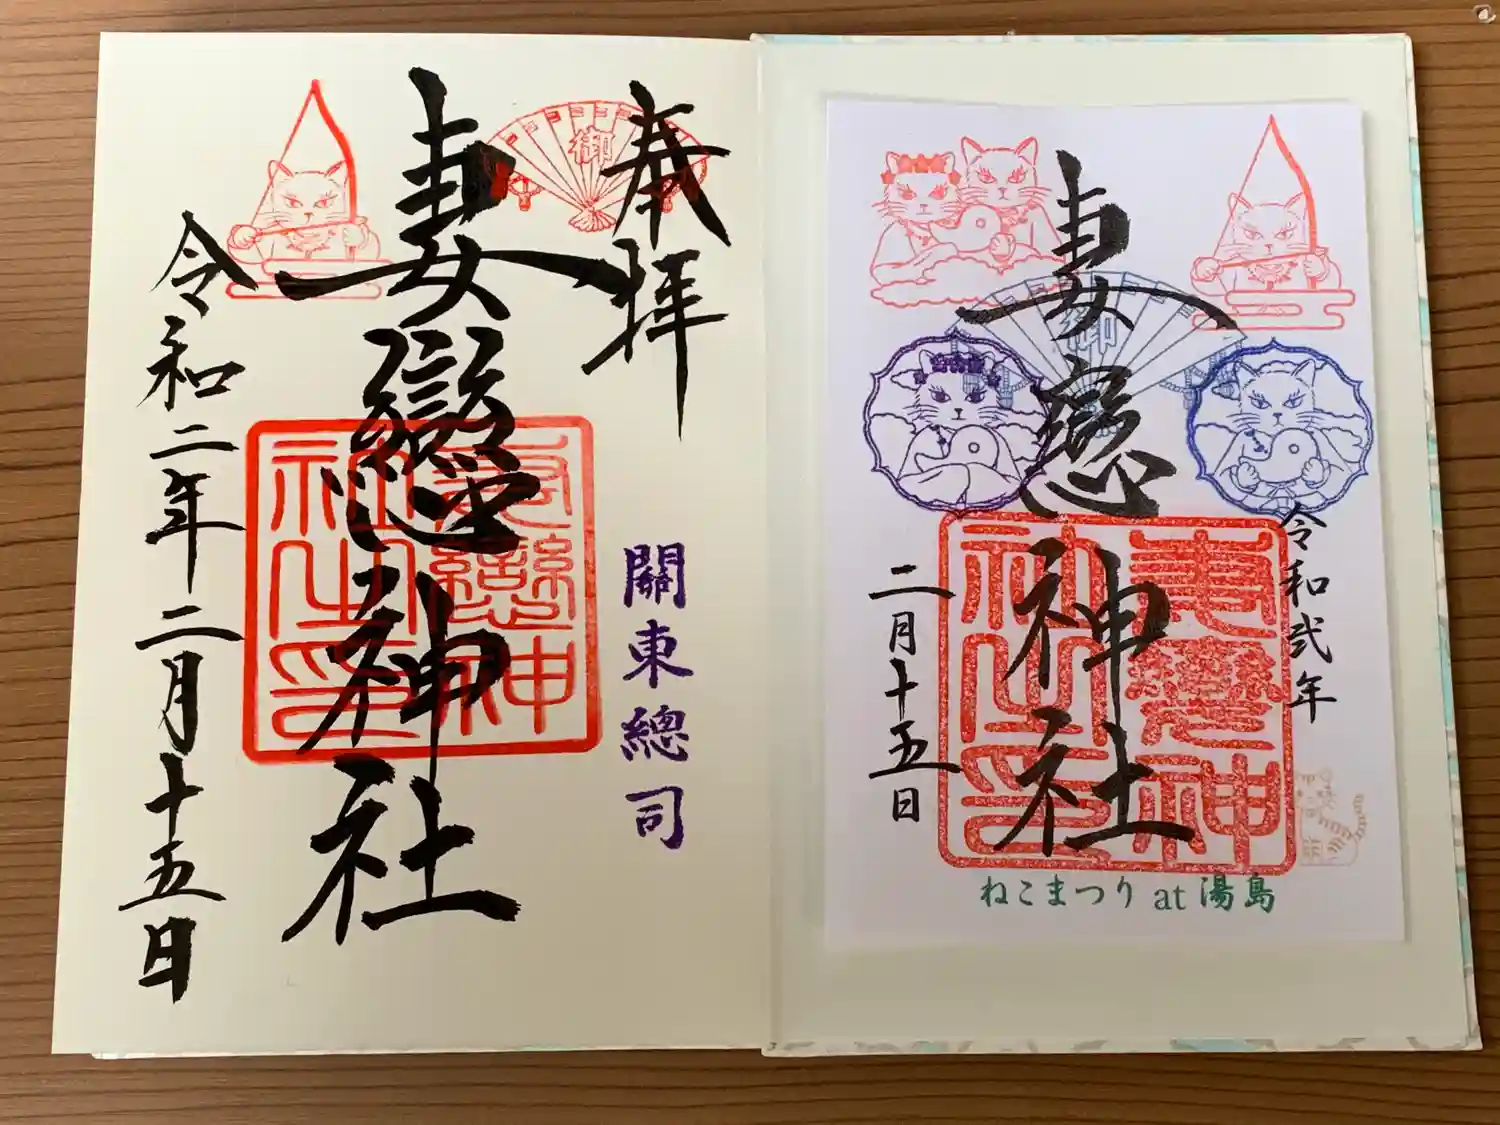 奉拝
御
關東總司
妻戀神社
妻戀神社之印
令和二年二月十五日
令和弐年
御
妻恋神社
妻戀神社之印
二月十五日
ねこまつり at 湯島